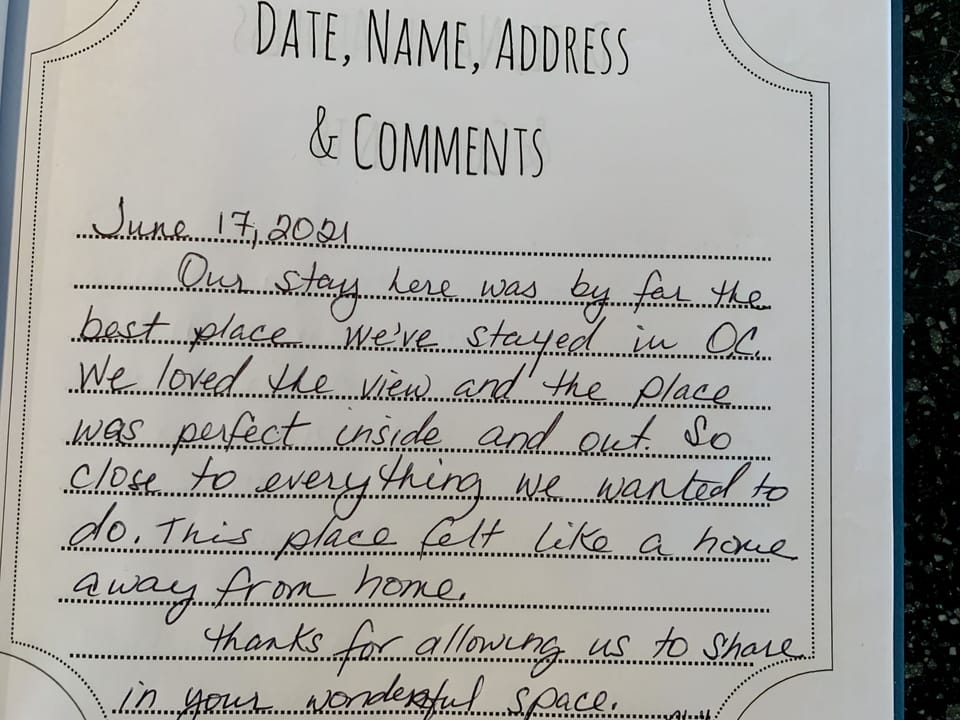 DATE, NAME, ADDRESS
& COMMENTS
June 17, 2021
Our stay here was by far the
best place we've stayed in O.C.
We loved the view and the place
was perfect inside and out. So
close to everything we wanted to
do. This place felt like a home
away from home.
Thanks for allowing us to share
in your wonderful space.